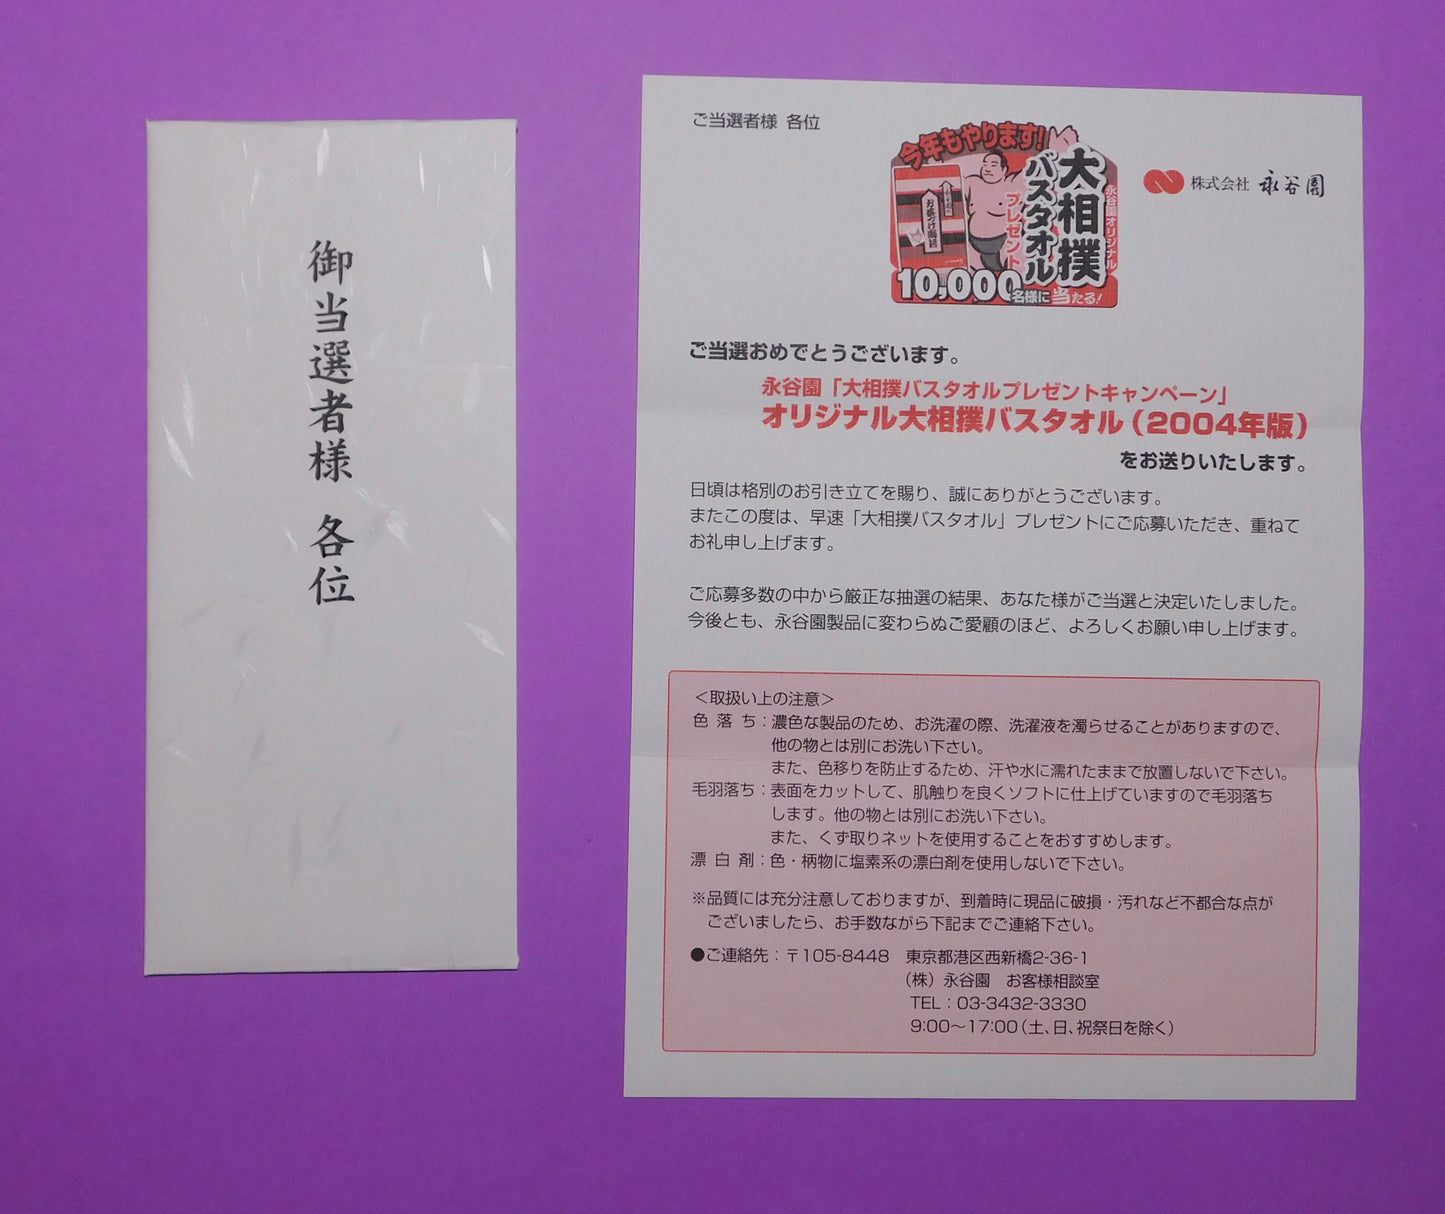 御当選者様 各位
ご当選者様 各位
今年もやります!
大相撲
バスタオル
プレゼント
永谷園オリジナル
10,000名様に当たる!
株式会社 永谷園
ご当選おめでとうございます。
永谷園「大相撲バスタオルプレゼントキャンペーン」
オリジナル大相撲バスタオル(2004年版)
をお送りいたします。
日頃は格別のお引き立てを賜り、誠にありがとうございます。
またこの度は、早速「大相撲バスタオル」プレゼントにご応募いただき、重ねて
お礼申し上げます。
ご応募多数の中から厳正な抽選の結果、あなた様がご当選と決定いたしました。
今後とも、永谷園製品に変わらぬご愛顧のほど、よろしくお願い申し上げます。
<取扱い上の注意>
色落ち:濃色な製品のため、お洗濯の際、洗濯液を濁らせることがありますので、
他の物とは別にお洗い下さい。
また、色移りを防止するため、汗や水に濡れたままで放置しないで下さい。
毛羽落ち:表面をカットして、肌触りを良くソフトに仕上げていますので毛羽落ち
します。他の物とは別にお洗い下さい。
また、くず取りネットを使用することをおすすめします。
漂白剤:色・柄物に塩素系の漂白剤を使用しないで下さい。
※品質には充分注意しておりますが、到着時に現品に破損・汚れなど不都合な点が
ございましたら、お手数ながら下記までご連絡下さい。
●ご連絡先:〒105-8448 東京都港区西新橋2-36-1
(株)永谷園 お客様相談室
TEL:03-3432-3330
9:00〜17:00(土、日、祝祭日を除く)